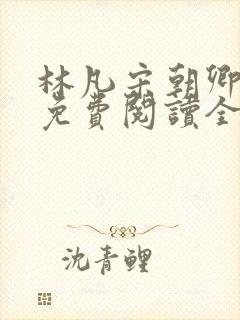 林凡宋朝卿
免費閱讀全
沈青鲤